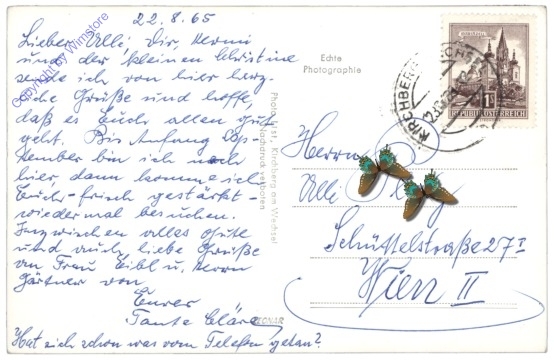 22.8.65
Lieber Ulli! Dir, Hermi
und der kleinen Christine
sende ich von hier herz-
liche Grüße und hoffe,
daß es Euch allen gut
geht. Bis Anfang Sep-
tember bin ich noch
hier, dann komme ich
Euch - frisch gestärkt -
wiedermal besuchen.
Inzwischen alles Gute
und auch liebe Grüße
an Frau Eibl u. Herrn
Gärtner von
Eurer
Tante Cläre
Hat sich schon was vom Telefon getan?
Copyright by Wimstore
Echte
Photographie
Kirchberg am Wechsel
Nachdruck verboten
KIRCHBERG
REPUBLIK ÖSTERREICH
Herrn
Ulli
Schüttelstraße 27
Wien II